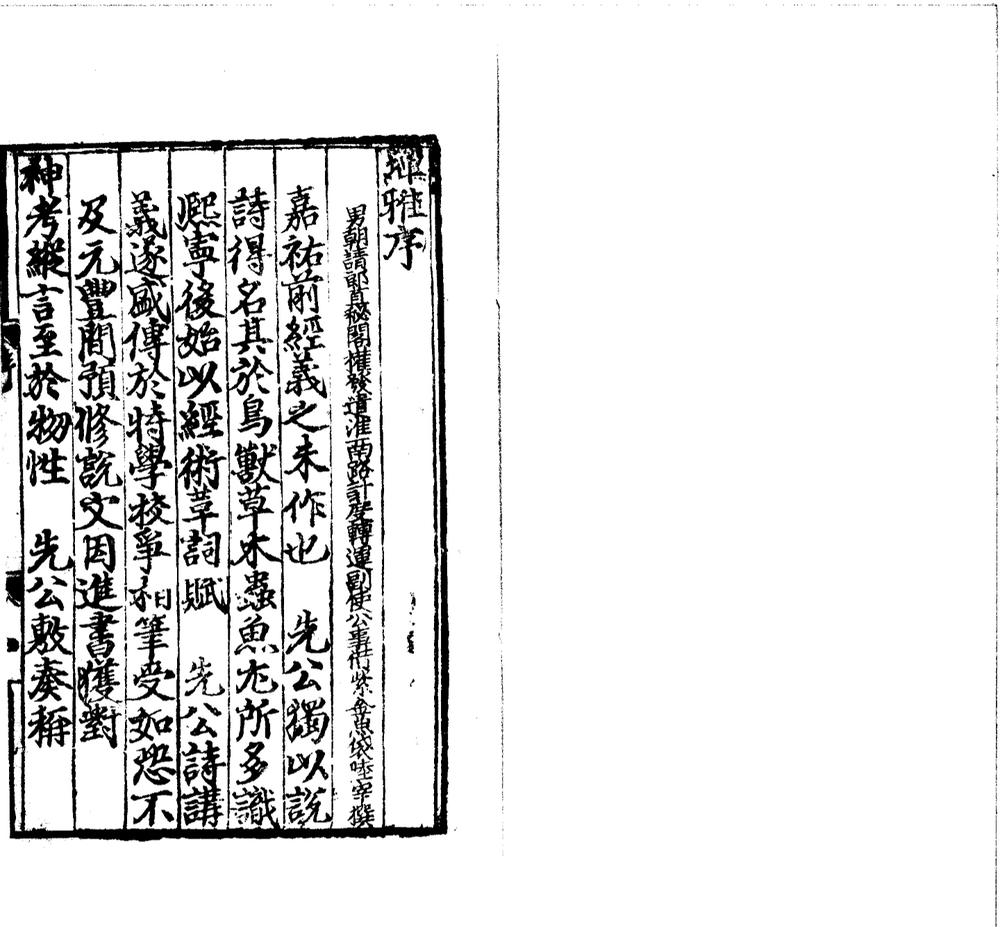 埤雅序
男朝請郎直秘閣權發遣淮南路計度轉運副使公事借紫金魚袋陸宰撰
嘉祐前經義之未作也 先公獨以說
詩得名其於鳥獸草木蟲魚尤所多識
熙寧後始以經術革詞賦 先公詩講
義遂盛傳於時學校爭相筆受如恐不
及元豐間預修說文因進書獲對
神考縱言至於物性 先公敷奏稱